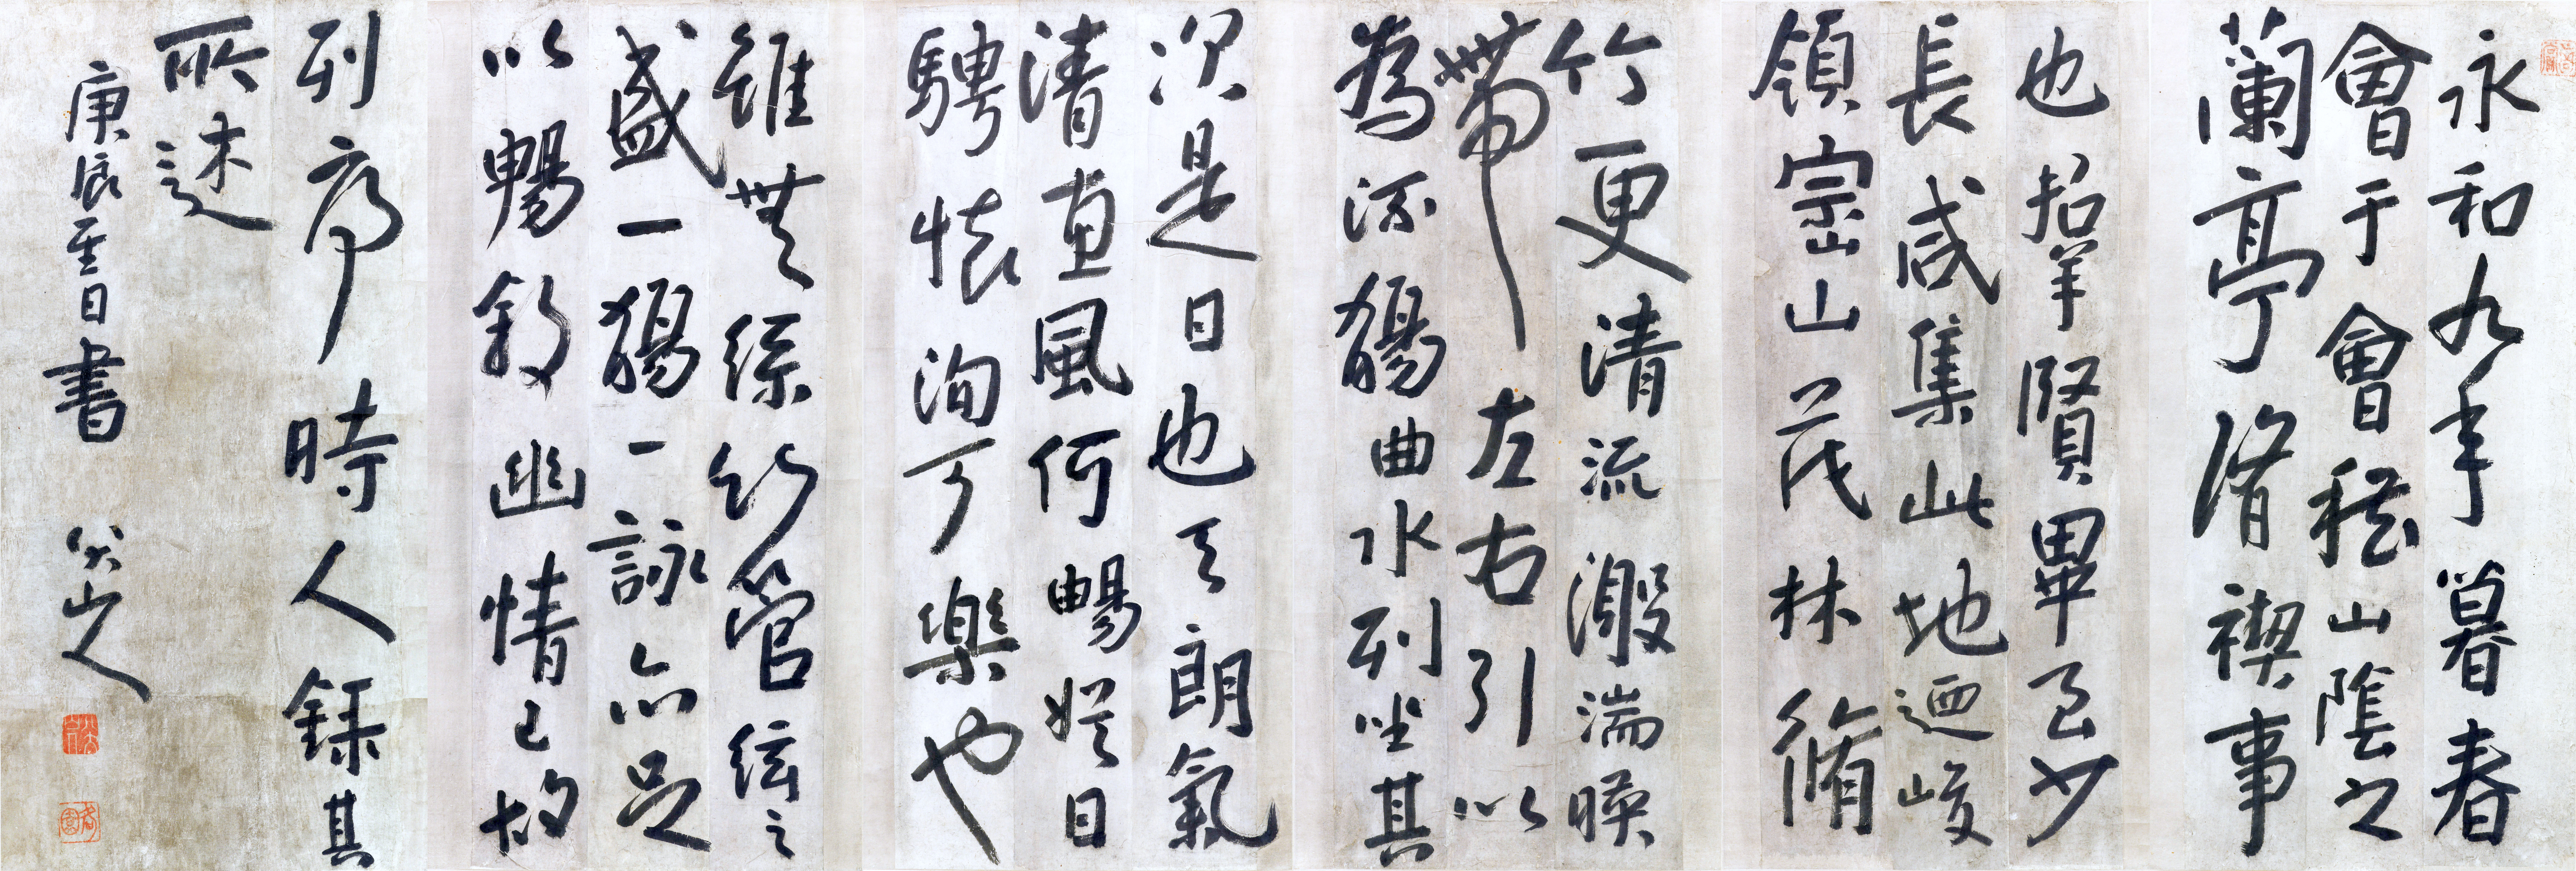 永和九年暮春
會于會稽山陰之
蘭亭脩禊事
也招羣賢畢至少
長咸集此地迺峻
領崈山茂林脩
竹更清流激湍暎
帶左右引以
為流觴曲水列坐其
次是日也天朗氣
清惠風何暢娛日
騁懷洵可樂也
雖無絲竹管絃之
盛一觴一詠亦足
以暢敘幽情已故
列序時人錄其
所述
庚辰至日書 八大山人